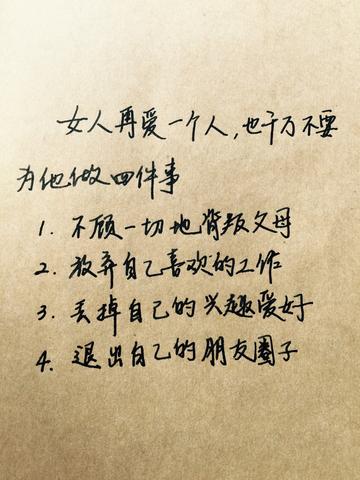 女人再爱一个人,也千万不要
为他做四件事
1. 不顾一切地背叛父母
2. 放弃自己喜欢的工作
3. 丢掉自己的兴趣爱好
4. 退出自己的朋友圈子